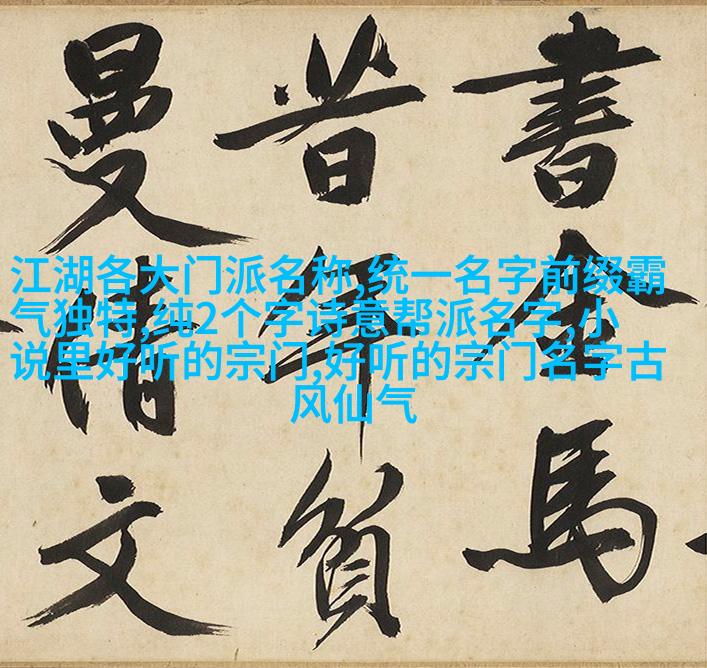 書金馬
昔年負
曼倩文
江湖各大门派名称,统一名字前缀霸
气独特,纯2个字诗意帮派名字,小
说里好听的宗门,好听的宗门名字古
风仙气